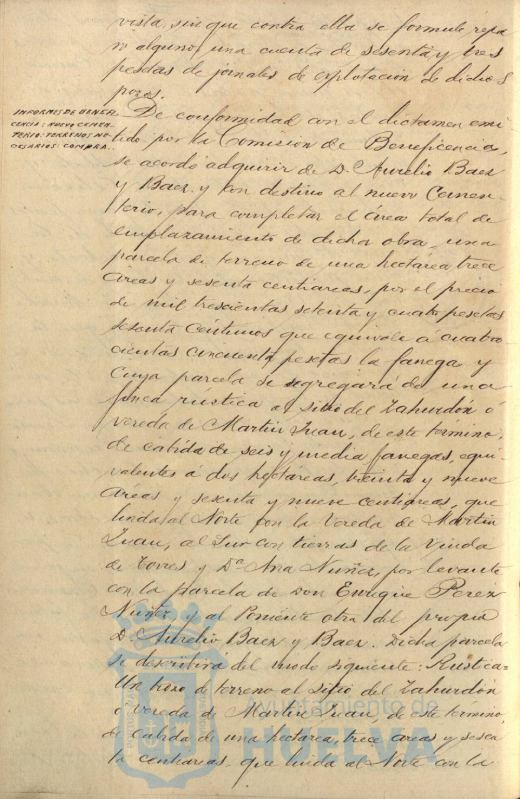 vista, sin que contra ella se formule repa
ro alguno, una cuenta de sesenta y tres
pesetas de jornales de explotación de dichos
pozos.
INFORMES DE BENEFI
CENCIA: NUEVO CEMEN
TERIO: TERRENOS NE
CESARIOS: COMPRA.
De conformidad con el dictamen emi
tido por la Comisión de Beneficencia,
se acordó adquirir de D. Aurelio Baez
y Baez y con destino al nuevo Cemen
terio, para completar el área total de
emplazamiento de dicha obra, una
parcela de terreno de una hectárea trece
áreas y sesenta centiareas, por el precio
de mil trescientas setenta y cuatro pesetas
sesenta céntimos que equivale á cuatro
cientas cincuenta pesetas la fanega y
cuya parcela se segregará de una
finca rustica al sitio del Zahurdón ó
vereda de Martin Juan, de este termino,
de cabida de seis y media fanegas, equi
valentes á dos hectáreas, treinta y nueve
áreas y sesenta y nueve centiareas, que
linda al Norte con la Vereda de Martin
Juan, al Sur con tierras de la Viuda
de Torres y Dª Ana Nuñez, por levante
con la parcela de Don Enrique Perez
Nuñez y al Poniente otra del propio
D. Aurelio Baez y Baez. Dicha parcela
se describirá del modo siguiente: Rustica=
Un trozo de terreno al sitio del Zahurdón
ó vereda de Martin Juan, de este término,
de cabida de una hectárea, trece áreas y sesen
ta centiareas, que linda al Norte con la
Ayuntamiento de
HUELVA